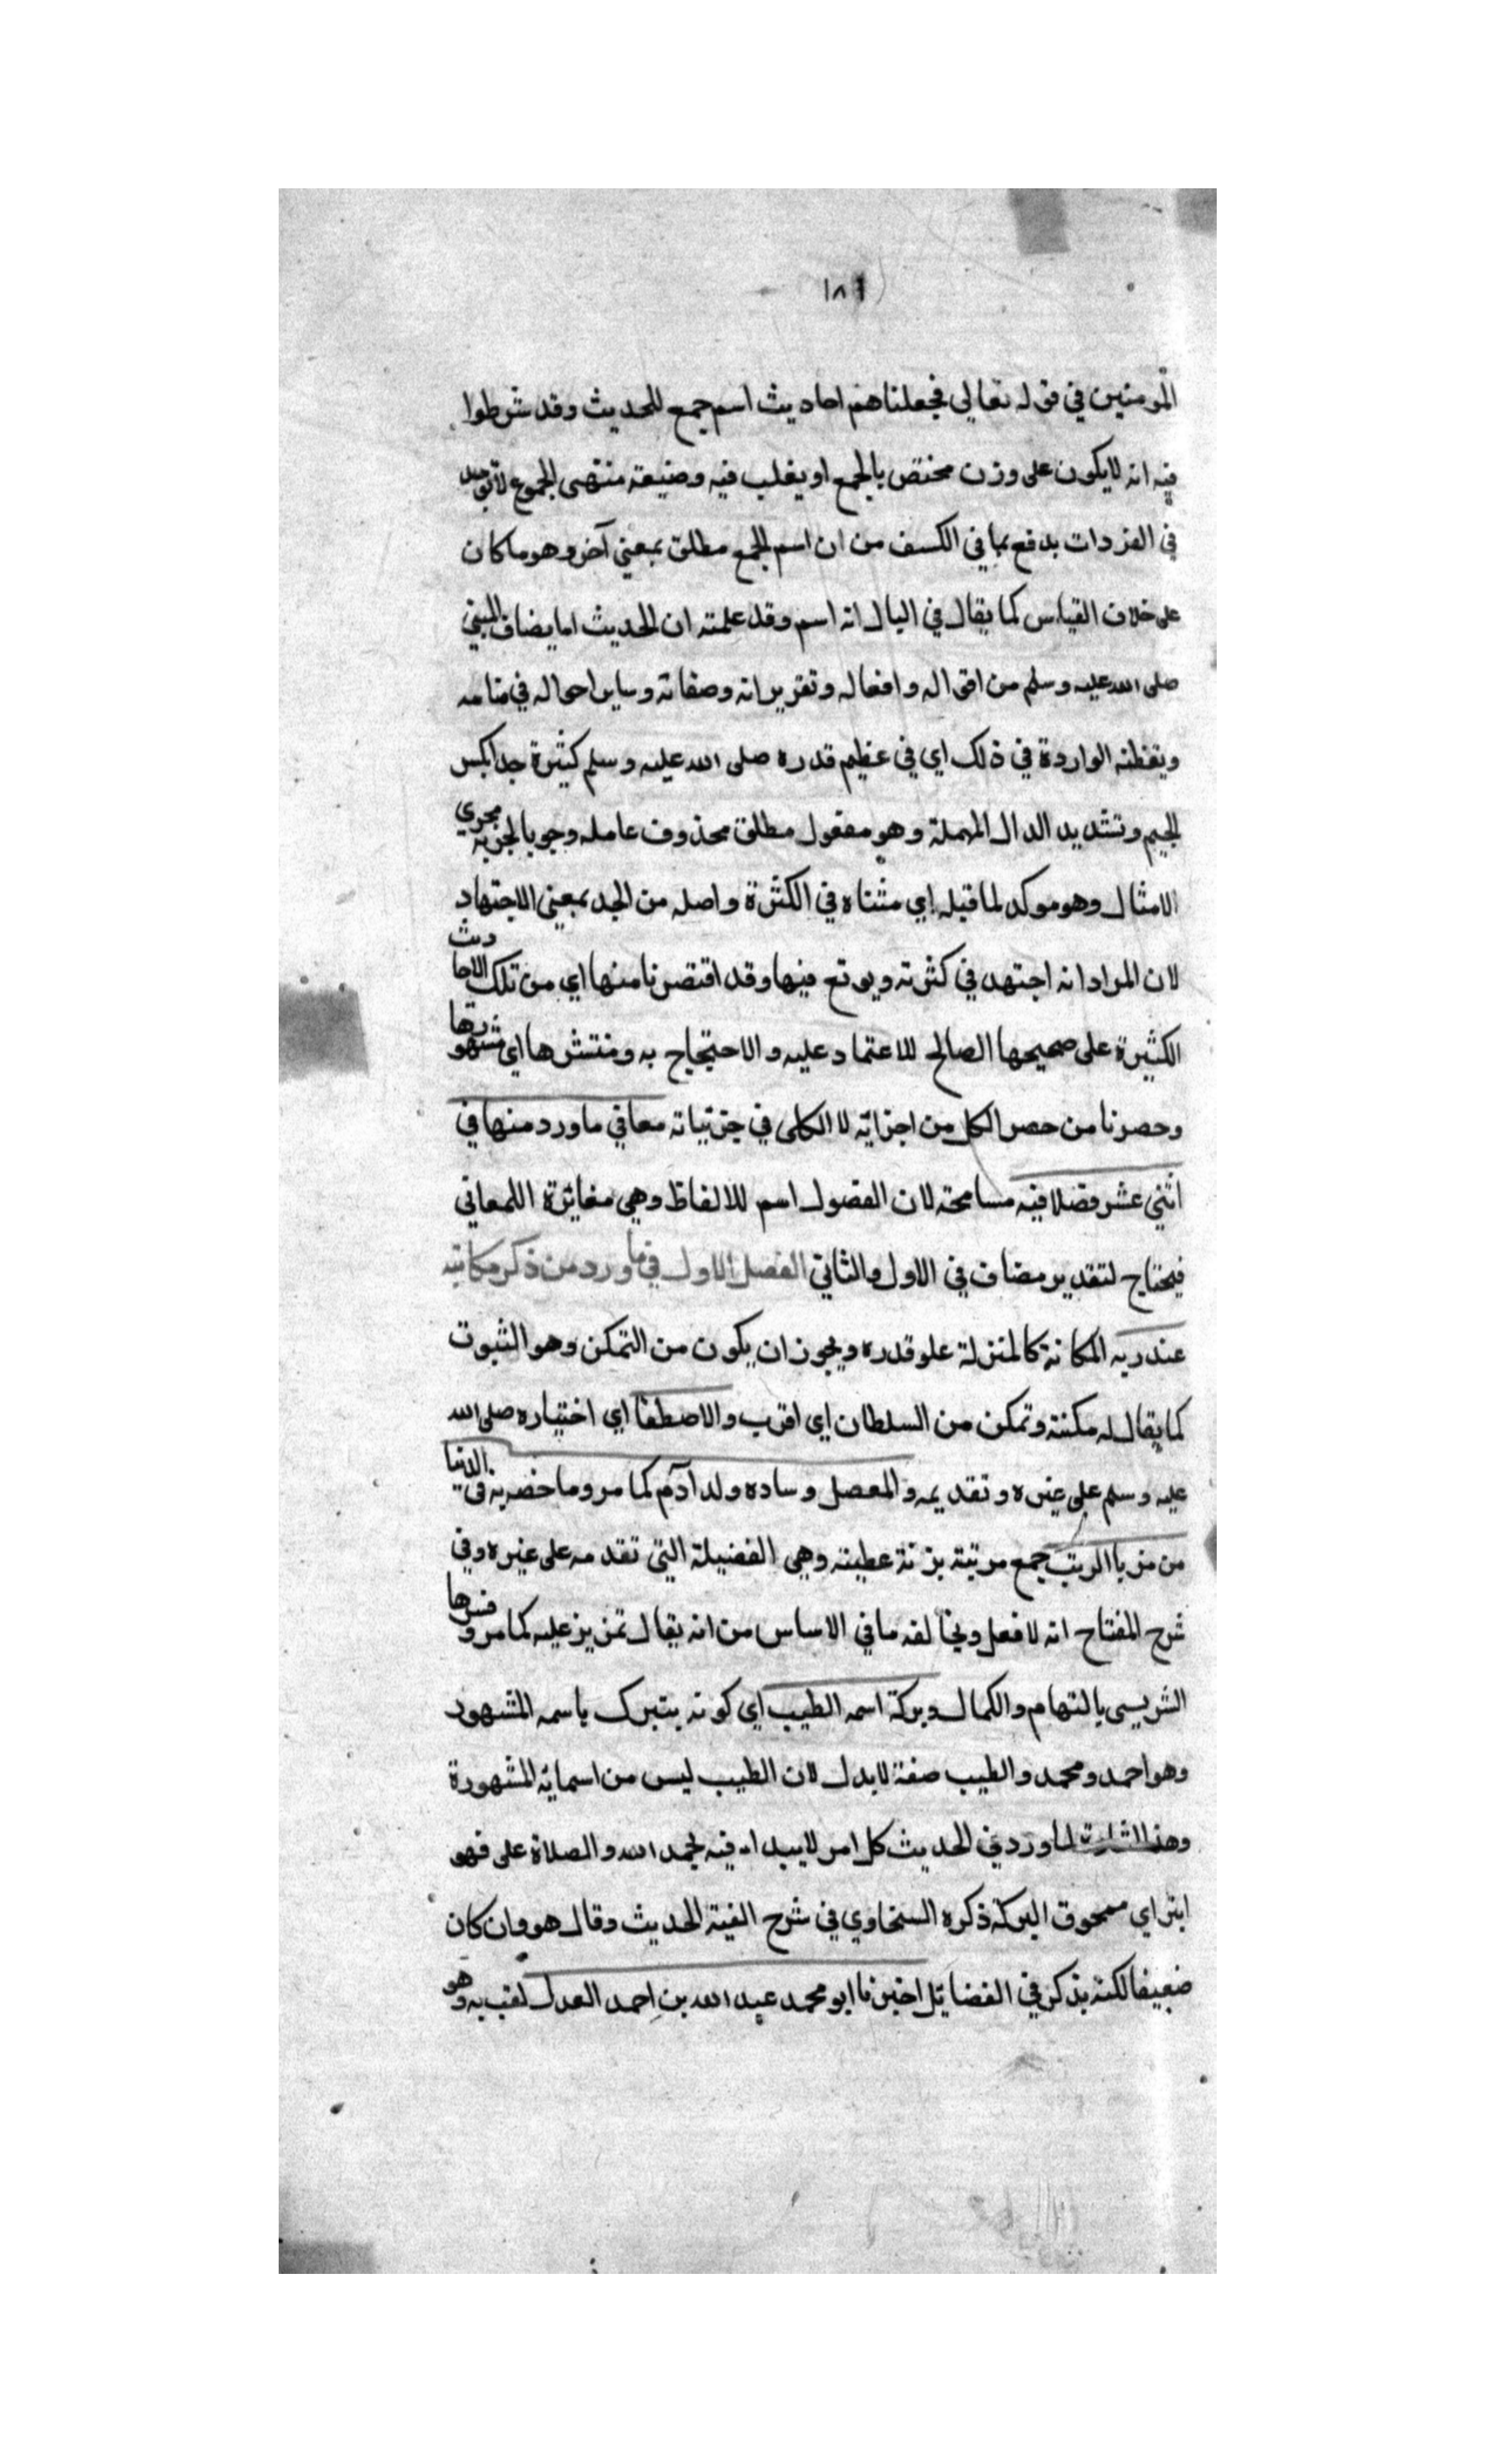 ١٨٦
المومنين في قوله تعالي فجعلناهم احاديث اسم جمع للحديث وقد شرطوا
فيه انه لايكون على وزن مختص بالجمع او يغلب فيه وصيغة منتهى الجموع لاتوجد
في المفردات يدفع بما في الكسف من ان اسم الجمع مطلق بمعني آخر وهو ما كان
على خلاف القياس كما يقال في اليال انه اسم وقد علمته ان الحديث ما يضاف للنبي
صلى الله عليه وسلم من اقواله وافعاله وتقريراته وصفاته وساير احواله في منامه
ويقظته الواردة في ذلك اي في عظيم قدره صلى الله عليه وسلم كثيرة جدا بكسر
الجيم وتشديد الدال المهملة وهو مفعول مطلق محذوف عامله وجوبا لجريه مجري
الامثال وهو موكد لما قبله اي مثناه في الكثرة واصله من الجد بمعنى الاجتهاد
لان المراد انه اجتهد في كثرته وبوتع فيها وقد اقتصرنا منها اي من تلك الاحاديث
الكثيرة على صحيحها الصالح للاعتماد عليه والاحتجاج به ومنتشرها اي مشهورها
وحصرنا من حصر الكل من اجزائه لا الكلى في جزئياته معاني ما ورد منها في
اثني عشر فصلا فيه مسامحة لان الفصول اسم للالفاظ وهي مغائرة اللمعاني
فيحتاج لتقدير مضاف في الاول والثاني الفصل الاول فيما ورد من ذكر مكانته
عند ربه المكانة كالمنزلة علو قدره ويجوز ان يكون من التمكن وهو الثبوت
كما يقال له مكنة وتمكن من السلطان اي اقرب والاصطفا اي اختياره صلى الله
عليه وسلم على غيره وتقديمه والمعصل وسادة ولد آدم كما مر وما خصه به في الدنيا
من مزايا الرتب جمع مرتبة بزنة عطية وهي الفضيلة التي تقدمه على غيره وفي
شرح المفتاح انه لا فعل ويخالفه ما في الاساس من انه يقال تمزيز عليه كما مر وفسرها
الشريسى بالتهام والكمال وبركة اسمه الطيب اي كونه يتبرك باسمه المشهود
وهو احمد ومحمد والطيب صفة لا بدل لان الطيب ليس من اسمائه المشهورة
وهذا اشارة لما ورد في الحديث كل امر لا يبدا فيه بحمد الله والصلاة على فهو
ابتر اي ممحوق البركة ذكره السخاوي في شرح الفية الحديث وقال هو وان كان
ضعيفا لكنه يذكر في الفضائل اخبرنا ابو محمد عبد الله بن احمد العدل لقب به وهو